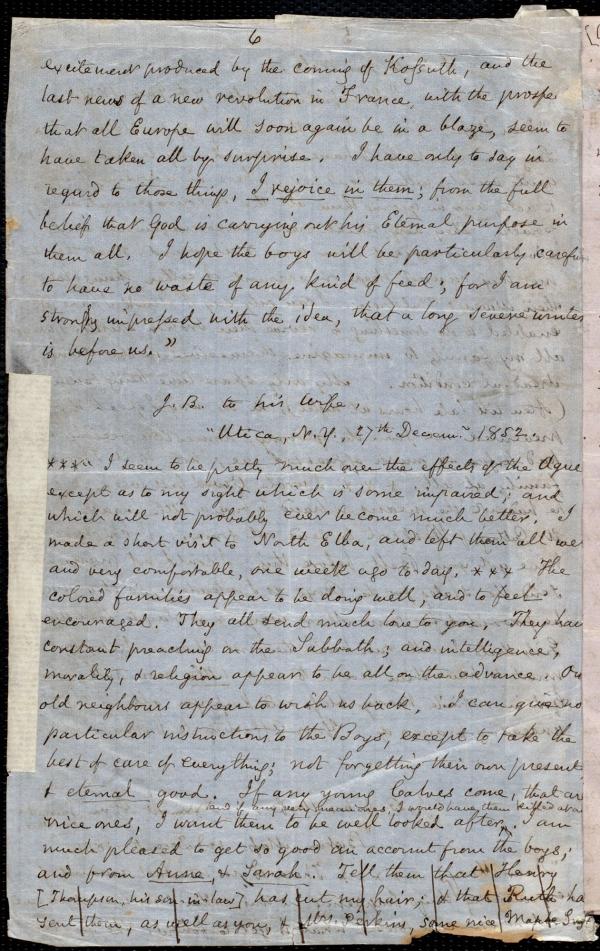 6
excitement produced by the coming of Kossuth, and the
last news of a new revolution in France, with the prospe
that all Europe will soon again be in a blaze, seem to
have taken all by surprise. I have only to say in
regard to those things, I rejoice in them; from the full
belief that God is carrying out his Eternal purpose in
them all. I hope the boys will be particularly careful
to have no waste of any kind of feed; for I am
strongly impressed with the idea, that a long severe winter
is before us."
J. B. to his wife.
"Utica, N.Y., 27th Decem. 1852.
***" I seem to be pretty much over the effects of the Ague
except as to my sight which is some impaired; and
which will not probably ever become much better. I
made a short visit to North Elba, and left them all we
and very comfortable, one week ago to day. *** The
colored families appear to be doing well, and to feel
encouraged. They all send much love to you. They have
constant preaching on the Sabbath; and intelligence,
morality, & religion appear to be all on the advance. Ou
old neighbours appear to wish us back. I can give no
particular instructions to the Boys, except to take the
best of care of everything; not forgetting their own present
& eternal good. If any young Calves come, that are
and if any very mean ones, I would have them killed at
nice ones, I want them to be well looked after, I am
much pleased to get so good an account from the boys;
and from Anne, & Sarah. Tell them that Henry
[Thompson, his son-in-law] has cut my hair; & that Ruth ha
sent them, as well as you, & Mrs. Perkins, some nice Maple Sug